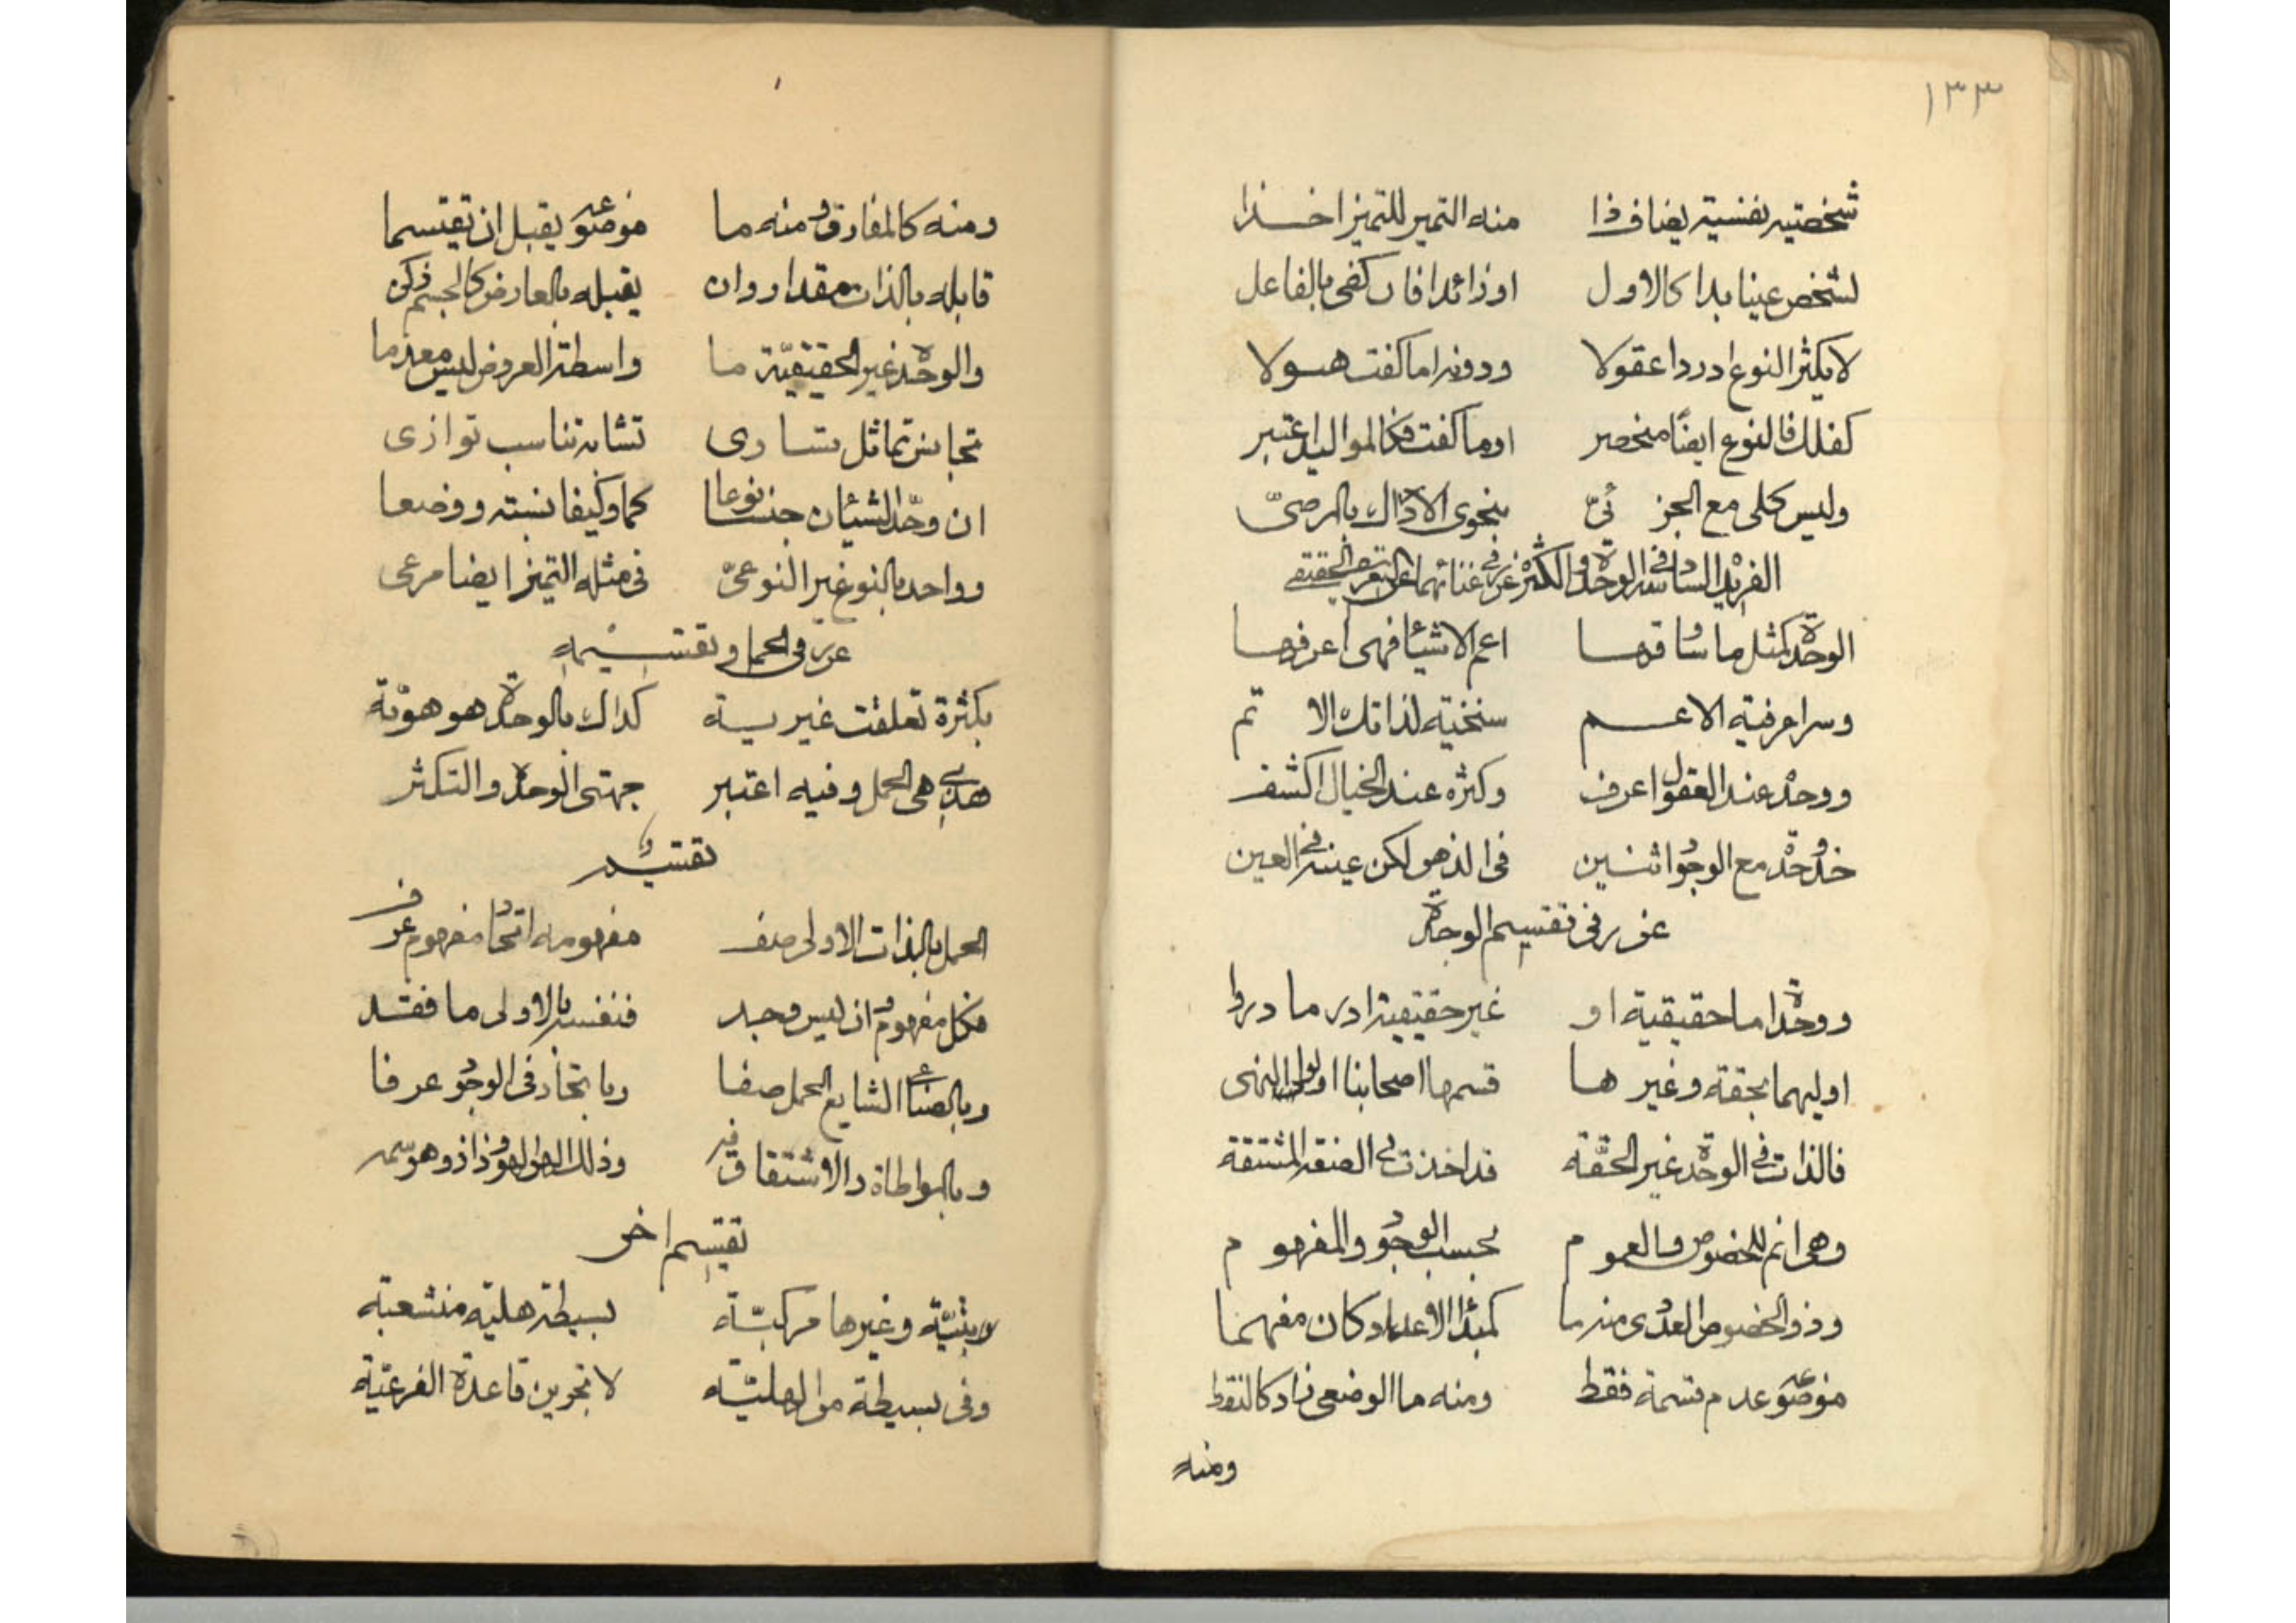 ١٣٣
شخصتیه نفسیة یضاف ذا منه التمیز للتمیز اخذا
لشخص عینا بدا کالاول او زائدا فان کفی بالفاعل
لا یکثر النوع ادرد اعقولا ودونه اما کفت هیولا
کفلك فالنوع ایضا منحصر او ما کفت فکالموالید اعتبر
ولیس کلی مع الجزئیّ بنحوی الادراك بالمرضیّ
الفریدة السادسة فی الوحدة والکثرة غرر فی غنائهما عن التعریف الحقیقی
الوحدة کمثل ما ساوقها اعم الاشیاء فهی اعرفها
وسر اعرفیة الاعم سنخیة لذاتك الاتم
ووحدة عند العقول اعرف وکثرة عند الخیال اکشف
خذ وحدة مع الوجود اثنین فی الذهن لکن عینه فی العین
غرر فی تقسیم الوحدة
ووحدة اما حقیقیة او غیر حقیقیة ادر ما دروا
اولیهما بحقة وغیرها قسمها اصحابنا اولوا النهی
فالذات فی الوحدة غیر الحقة قد اخذت فی الصفة المشتقة
وهی انم للخصوص والعموم بحسب الوجود والمفهوم
وذو الخصوص العددی منه ما کمبدأ الاعداد کان مفهما
موضوعه عدم قسمة فقط ومنه ما الوضعی زاد کالنقط
ومنه
ومنه کالمفارق ومنه ما موضوعه یقبل ان تقتسما
قابله بالذات مقدار وان یقبله بالعارض کالجسم زکن
والوحدة غیر الحقیقیّة ما واسطة العروض لیس معدما
تجانس تماثل تساوی تشابه تناسب توازی
ان وحّد الشیئان جنسا نوعا کما وکیفا نسبة ووضعا
وواحد بالنوع غیر النوعیّ فی مثله التمیز ایضا مرعی
غرر فی الحمل وتقسیمه
بکثرة تعلقت غیریة کذاك بالوحدة هو هویة
هذی هی الحمل وفیه اعتبر جهتی الوحدة والتکثر
تقسیم
الحمل بالذات الاولی وصف مفهومه اتحاد مفهوم عرف
فکل مفهوم وان لیس وجد فنفسه بالاولی ما فقد
وبالصناعی الشایع الحمل صفا وباتحاد فی الوجود عرفا
وبالمواطاة والاشتقاق فه وذلك الهو هو وذا ذو هو سمه
تقسیم اخر
بتیّة وغیرها مرکبّة بسیطة هلیة منشعبة
وفی بسیطة من الهلیّة لا تجرین قاعدة الفرعیّة